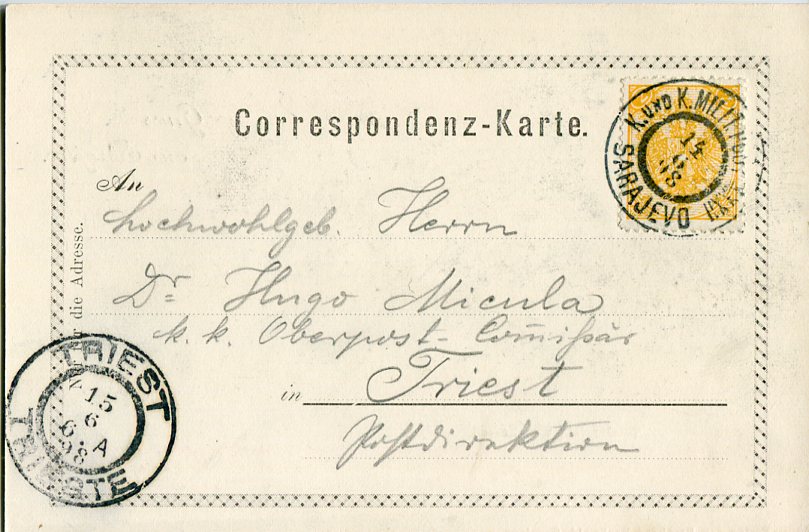 Correspondenz-Karte.
K. UND K. MILIT. POST
SARAJEVO
14
6
98
An
Hochwohlgeb. Herrn
Dr Hugo Micula
k. k. Oberpost-Com̅issär
in Triest
Postdirektion
Nur für die Adresse.
TRIEST
15
6
98
6. A
TRIESTE